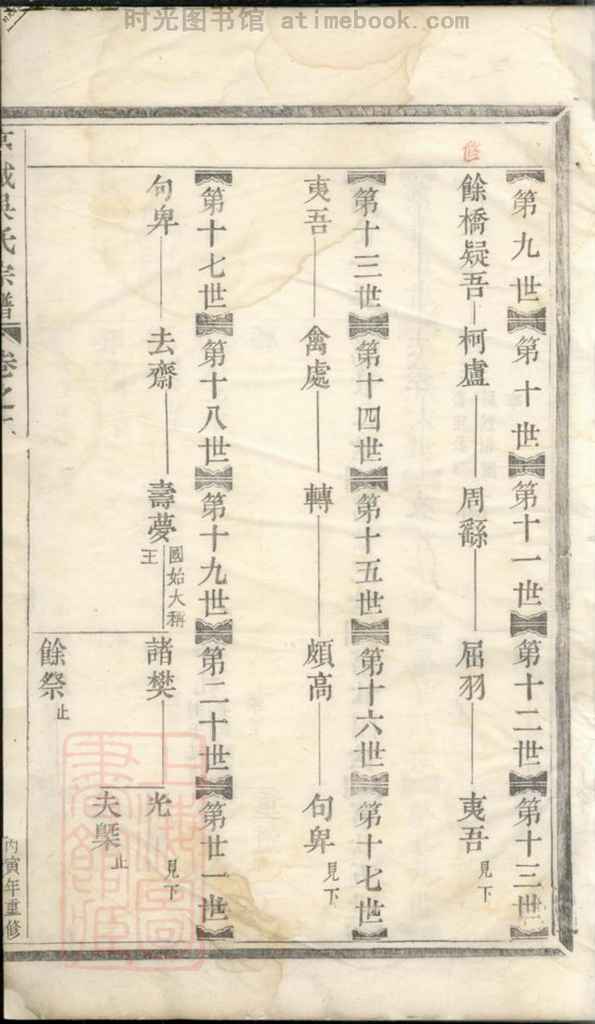 时光图书馆 atimebook.com
第九世 第十世 第十一世 第十二世 第十三世
餘橋疑吾 柯盧 周繇 屈羽 夷吾 見下
第十三世 第十四世 第十五世 第十六世 第十七世
夷吾 禽處 轉 頗高 句卑 見下
第十七世 第十八世 第十九世 第二十世 第廿一世
句卑 去齋 壽夢 國始大稱王 諸樊 光 見下
夫槩 止
餘祭 止
吳氏宗譜 卷之
丙寅年重修